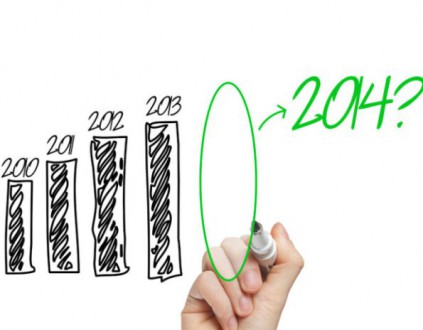 2010
2011
2012
2013
2014?